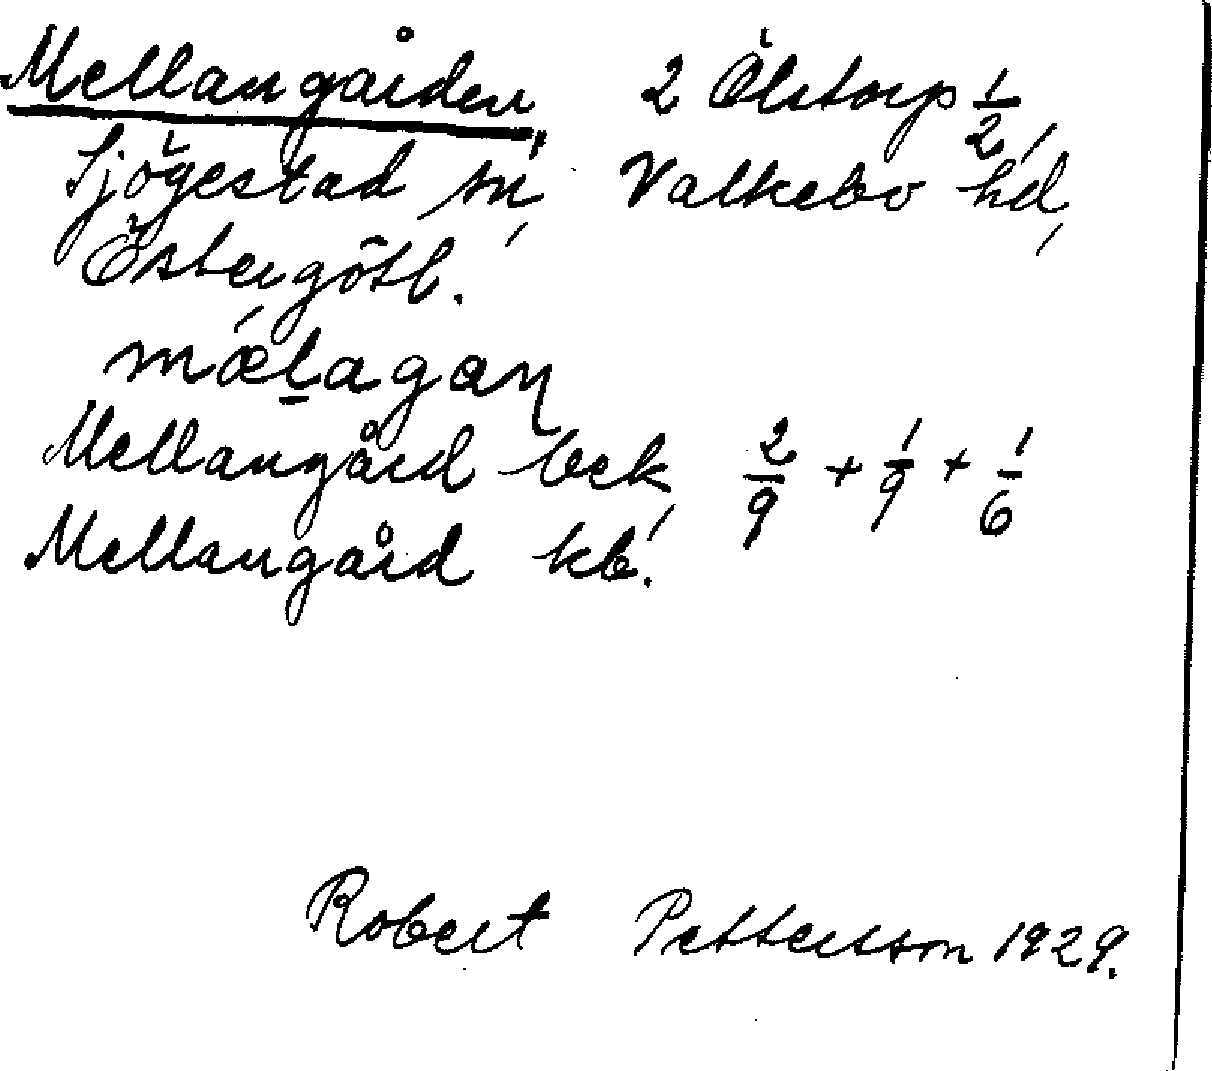 Mellangården, 2 Ölstorp 1/2,
Sjögestad sn, Valkebo hd,
Östergötl.
mǽlagaɳ
Mellangård bek, 2/9 + 1/9 + 1/6
Mellangård kb.
Robert Pettersson 1929.